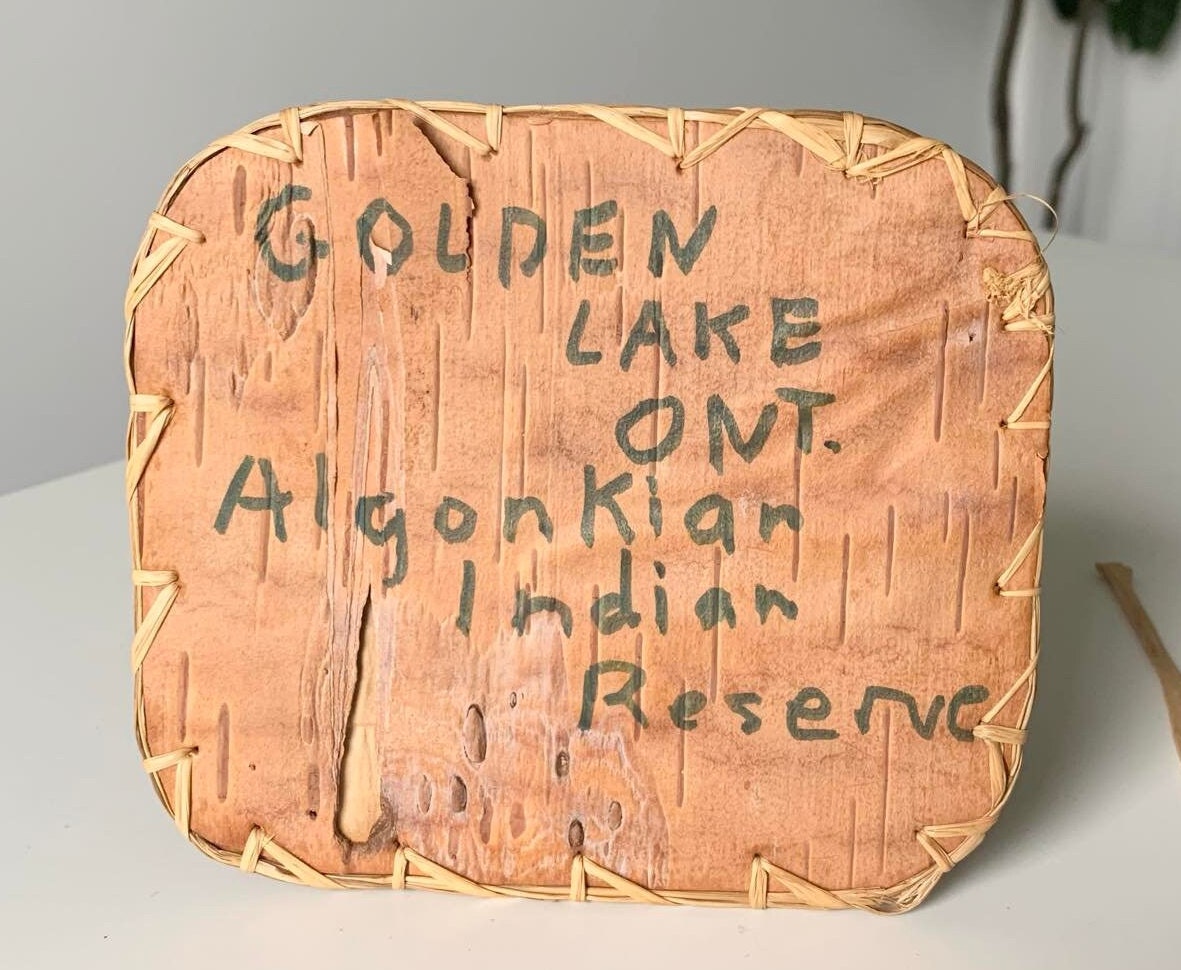 GOLDEN
LAKE
ONT.
Algonkian
Indian
Reserve